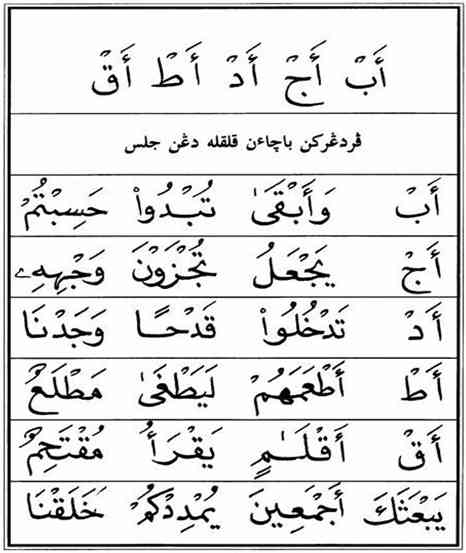 أَبْ أَجْ أَدْ أَطْ أَقْ
ڤردڠركن باچاءن قلقله دڠن جلس
أَبْ وَأَبْقَىٰ تُبْدُوا۟ حَسِبْتُمْ
أَجْ يَجْعَلُ تُجْزَوْنَ وَجْهِهِۦ
أَدْ تَدْخُلُوا۟ قَدْحًا وَجَدْنَا
أَطْ أَطْعَمَهُمْ لَيَطْغَىٰ مَطْلَعٌ
أَقْ أَقْلَـٰمٍ يَقْرَأُ مُقْتَحِمٌ
يَبْعَثَكَ أَجْمَعِينَ يُمْدِدْكُمْ خَلَقْنَا